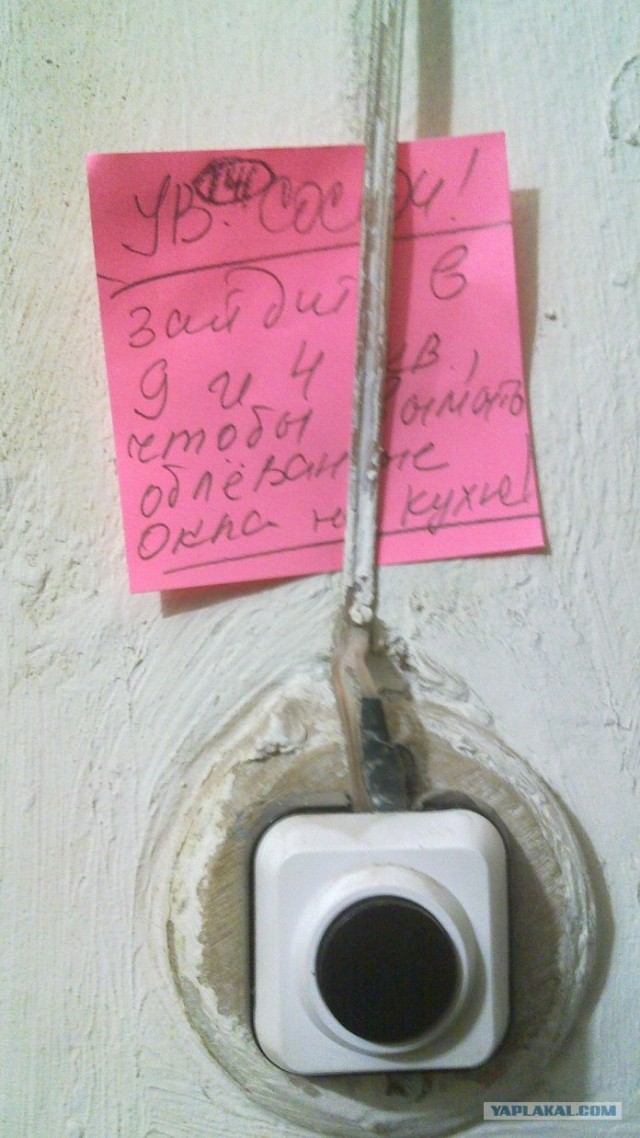 Ув. 141 соседи!
зайдите в
9 и 4 кв.,
чтобы вымыть
облёванные
окна на кухне!
YAPLAKAL.COM